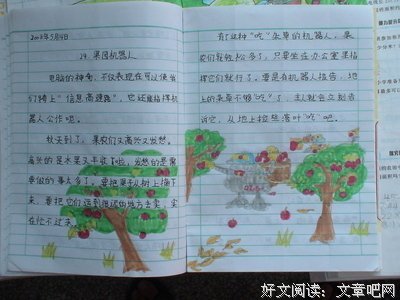 2012年5月4日
19.果园机器人
电脑的神奇,不仅表现在可以使我
们骑上"信息高速路",它还能指挥机
器人公作吧。
秋天到了,果农们又高兴又发愁。
高兴的是水果又丰收了啦,发愁的是需
要做的事太多了。要把果子从树上摘下
来,要把它们运到很远的地方去卖,实
在忙不过来。
有了这种"吃"
的机器人,果
农们就轻松多了,只要坐在办公室里指
挥它们就行了。要是有机器人报告,地
上的
不够"吃"了,主人就会立刻告
诉它,从地上捡些落叶"吃"吧。
好文阅读:文章吧网